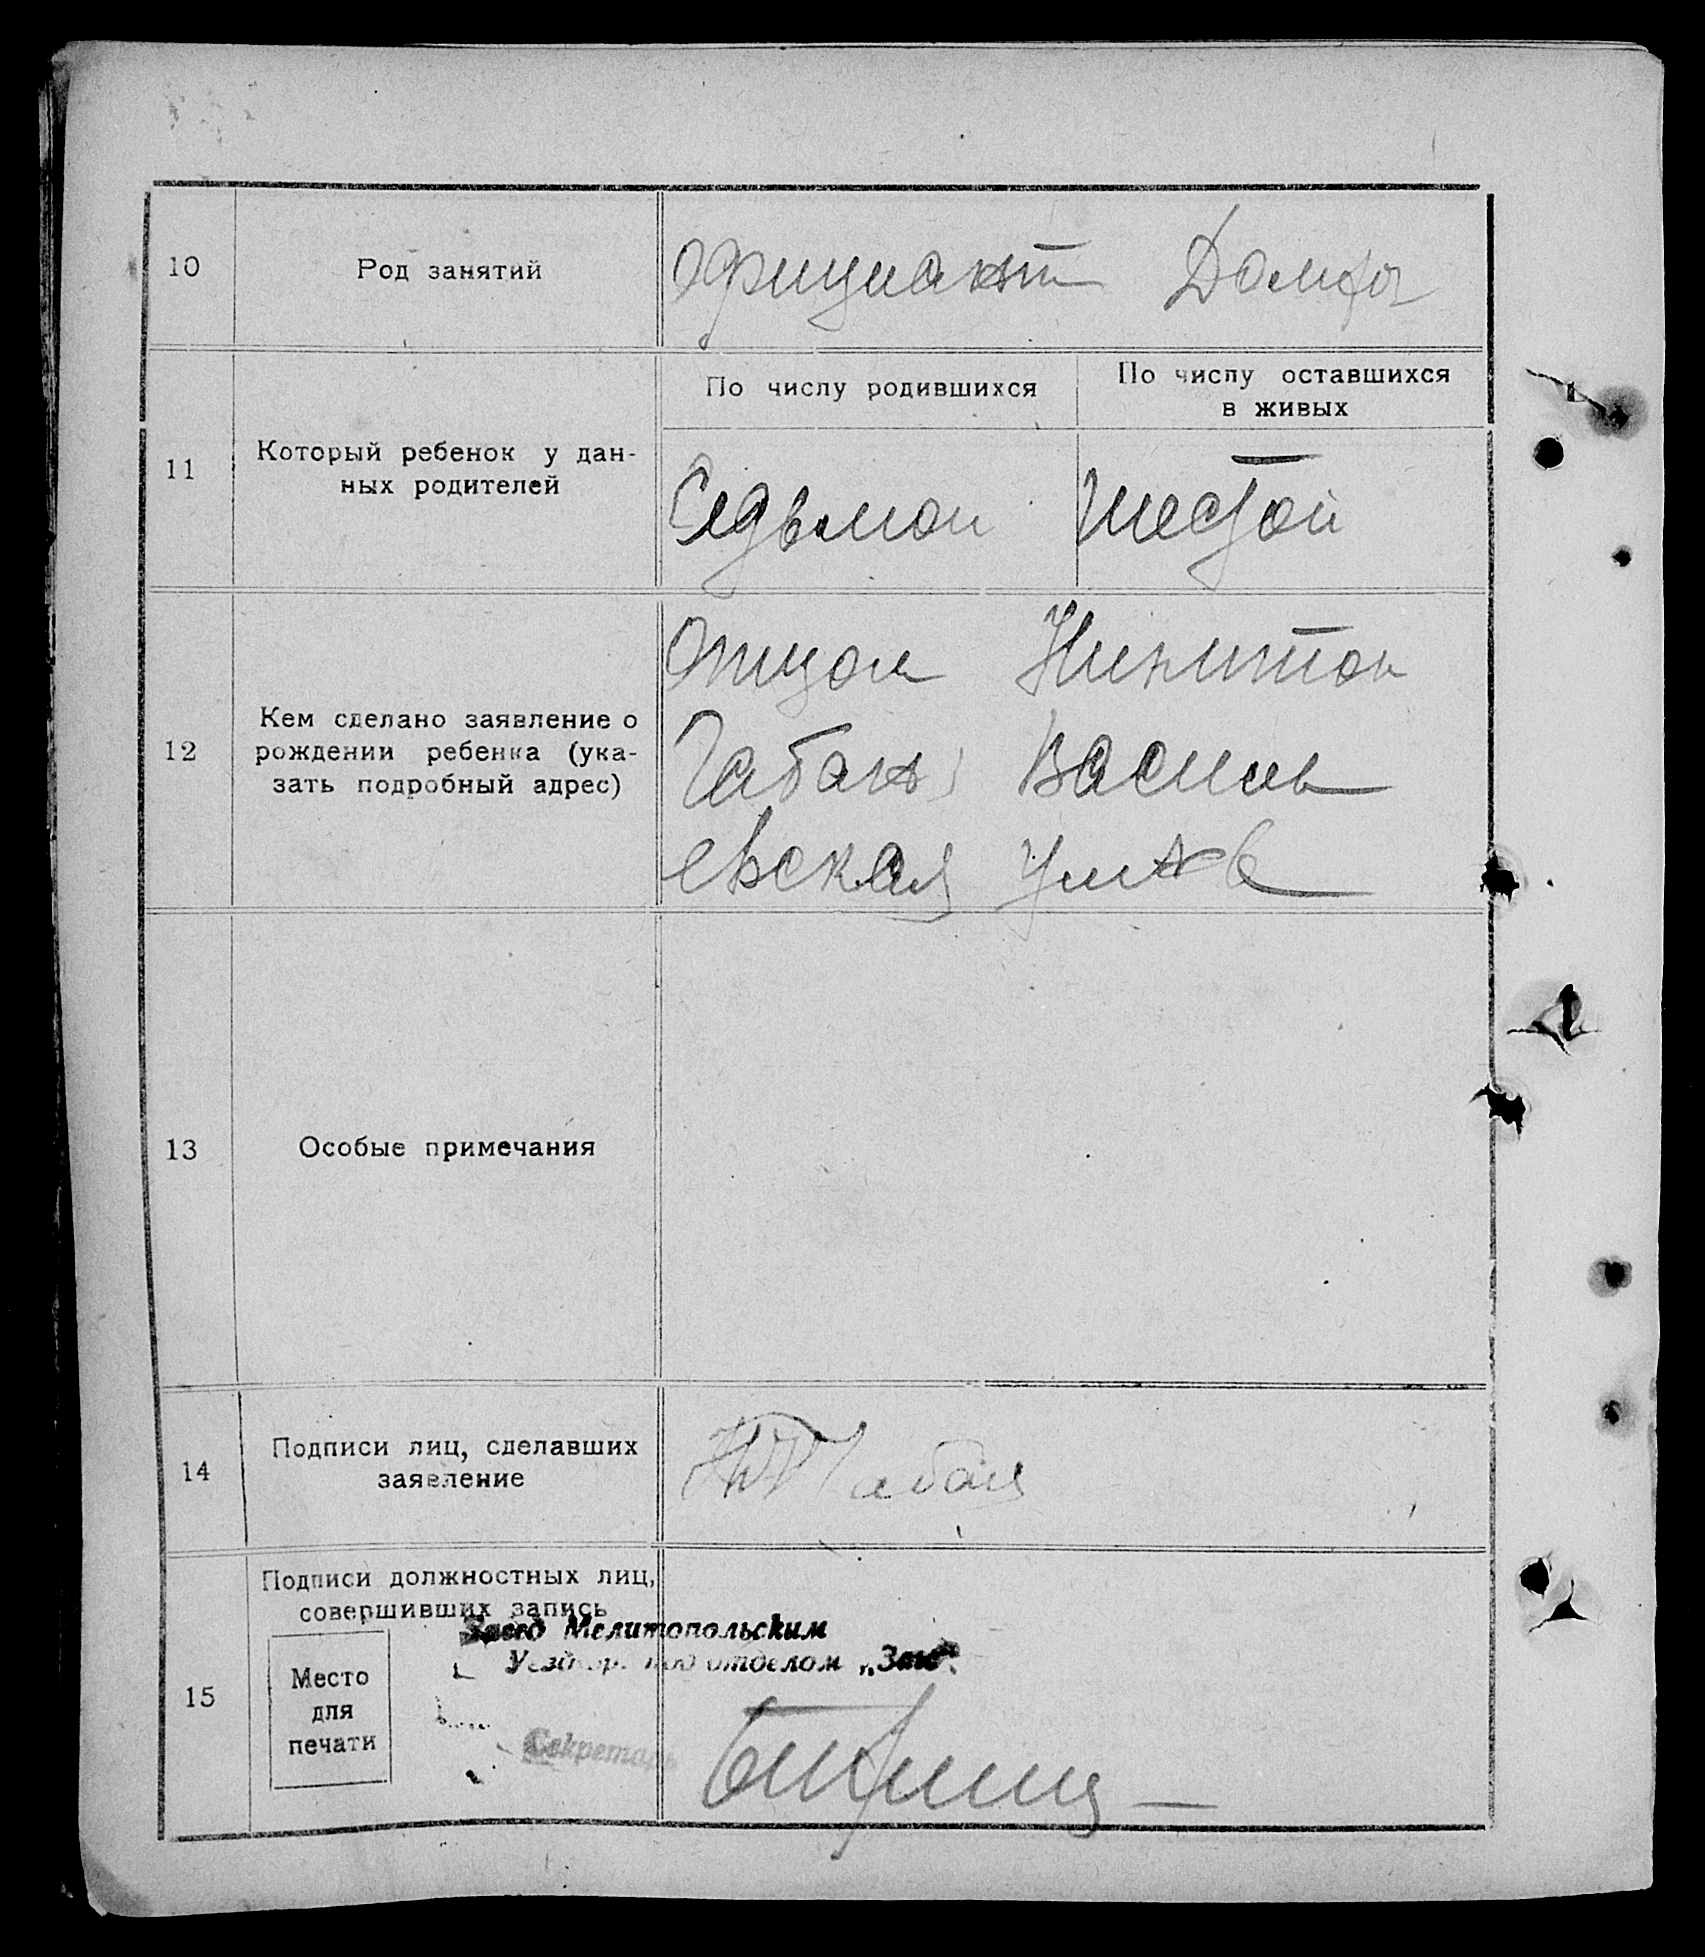 10
Род занятий
официант Домхоз
11
Который ребенок у дан-
ных родителей
По числу родившихся
Седьмой
По числу оставшихся
в живых
Шестой
12
Кем сделано заявление о
рождении ребенка (ука-
зать подробный адрес)
Отцом Никитой
Чабан Василь
евская ул
13
Особые примечания
14
Подписи лиц, сделавших
заявление
Чабан
15
Подписи должностных лиц,
совершивших запись
Место
для
печати
Завед Мелитопольским
под отделом „Загс"
Секретарь